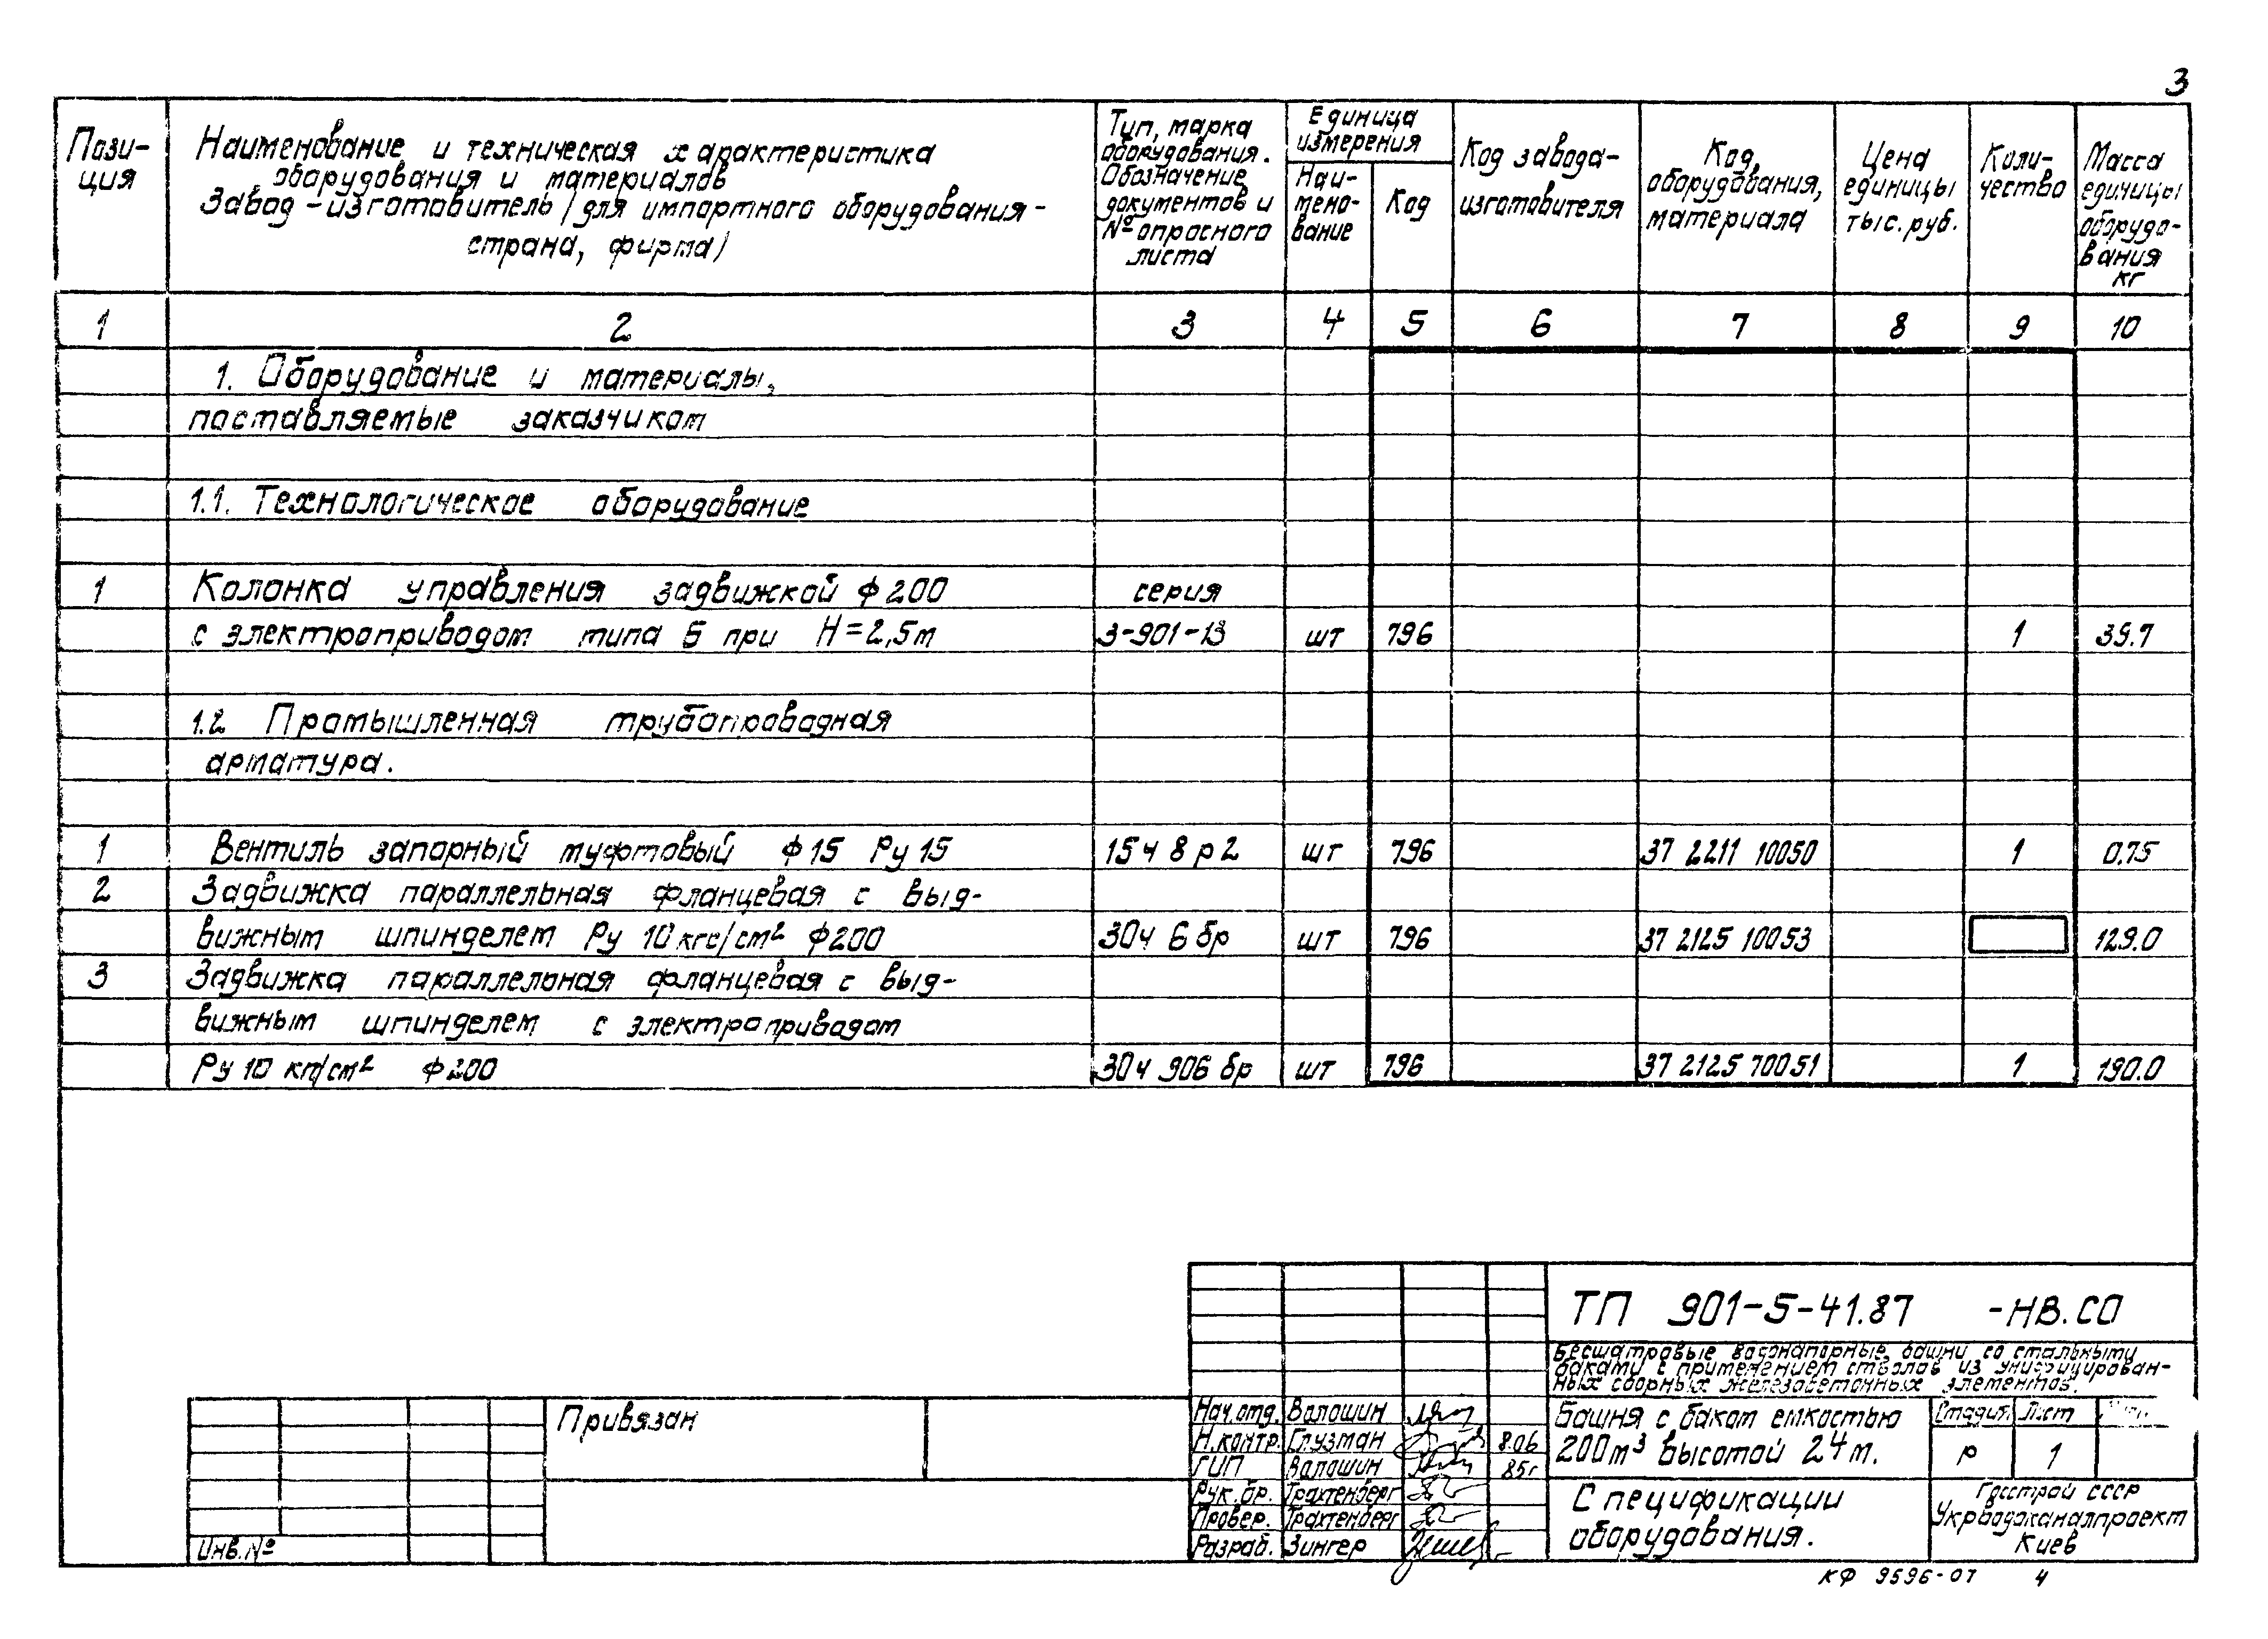 3
Пози-
ция
Наименование и техническая характеристика
оборудования и материалов
Завод-изготовитель /для импортного оборудования-
страна, фирма/
Тип, марка
оборудования.
Обозначение
документов и
№ опросного
листа
Единица
измерения
Наи-
мено-
вание
Код
Код завода-
изготовителя
Код,
оборудования,
материала
Цена
единицы
тыс. руб.
Коли-
чество
Масса
единицы
оборудо-
вания
кг
1 2 3 4 5 6 7 8 9 10
1. Оборудование и материалы,
поставляемые заказчиком
1.1. Технологическое оборудование
1 Колонка управления задвижкой ф 200 серия
с электроприводом типа Б при H=2,5м 3-901-13 шт 796 1 39.7
1.2 Промышленная трубопроводная
арматура.
1 Вентиль запорный муфтовый ф 15 Ру 15 15ч 8 р 2 шт 796 37 2211 10050 1 0.75
2 Задвижка параллельная фланцевая с выд-
вижным шпинделем Ру 10 кгс/см² ф200 30ч 6 бр шт 796 37 2125 10053 129.0
3 Задвижка параллельная фланцевая с выд-
вижным шпинделем с электроприводом
Ру 10 кг/см² ф 200 30ч 906 бр шт 796 37 2125 70051 1 190.0
ТП 901-5-41.87 -НВ.СО
Бесшатровые водонапорные башни со стальными
баками с применением стволов из унифицирован-
ных сборных железобетонных элементов.
Привязан
Инв.№
Нач.отд. Волошин
Н.контр. Глузман 8.06
ГИП Волошин 85г
Рук.бр. Трахтенберг
Провер. Трахтенберг
Разраб. Зингер
Башня с баком емкостью
200м³ высотой 24м.
Стадия Лист
Р 1
Спецификации
оборудования.
Госстрой СССР
Укрводоканалпроект
Киев
КФ 9596-07 4